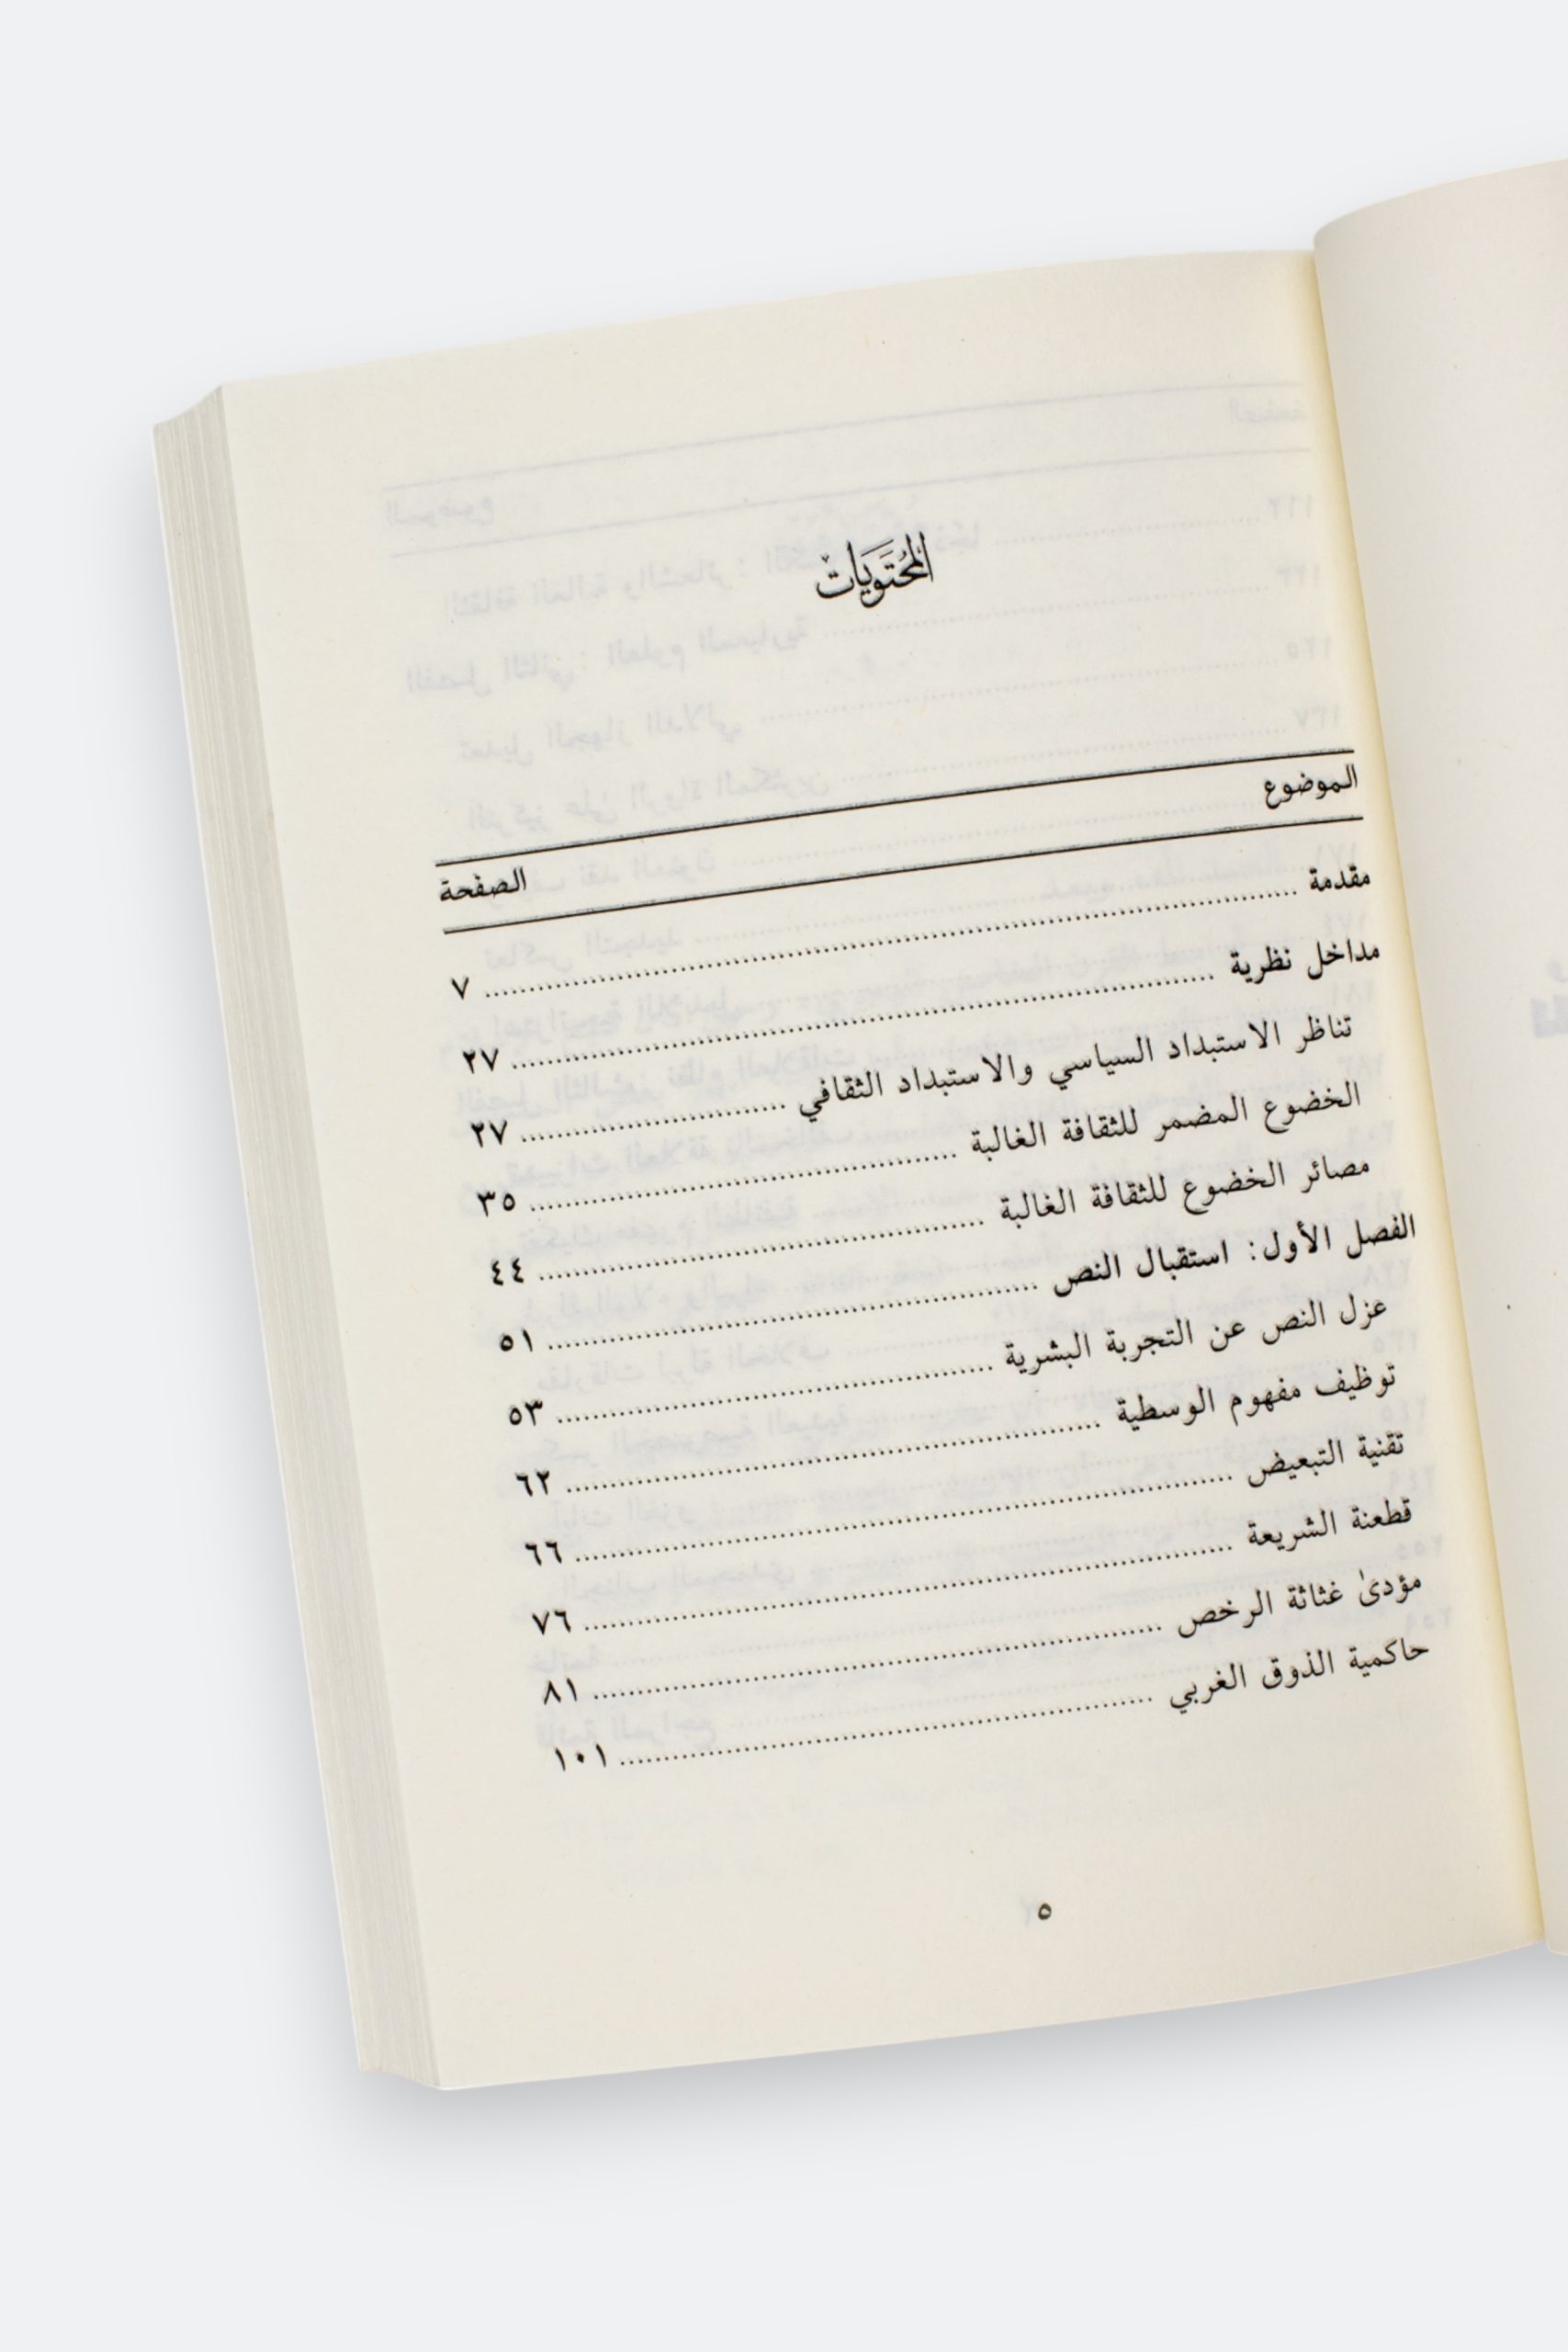 المُحْتَوَيَات
الموضوع الصفحة
مقدمة ........................................ ٧
مداخل نظرية ........................................ ٢٧
تناظر الاستبداد السياسي والاستبداد الثقافي ........................................ ٢٧
الخضوع المضمر للثقافة الغالبة ........................................ ٣٥
مصائر الخضوع للثقافة الغالبة ........................................ ٤٤
الفصل الأول: استقبال النص ........................................ ٥١
عزل النص عن التجربة البشرية ........................................ ٥٣
توظيف مفهوم الوسطية ........................................ ٦٢
تقنية التبعيض ........................................ ٦٦
قطعنة الشريعة ........................................ ٧٦
مؤدىٰ غثاثة الرخص ........................................ ٨١
حاكمية الذوق الغربي ........................................ ١٠١
٥